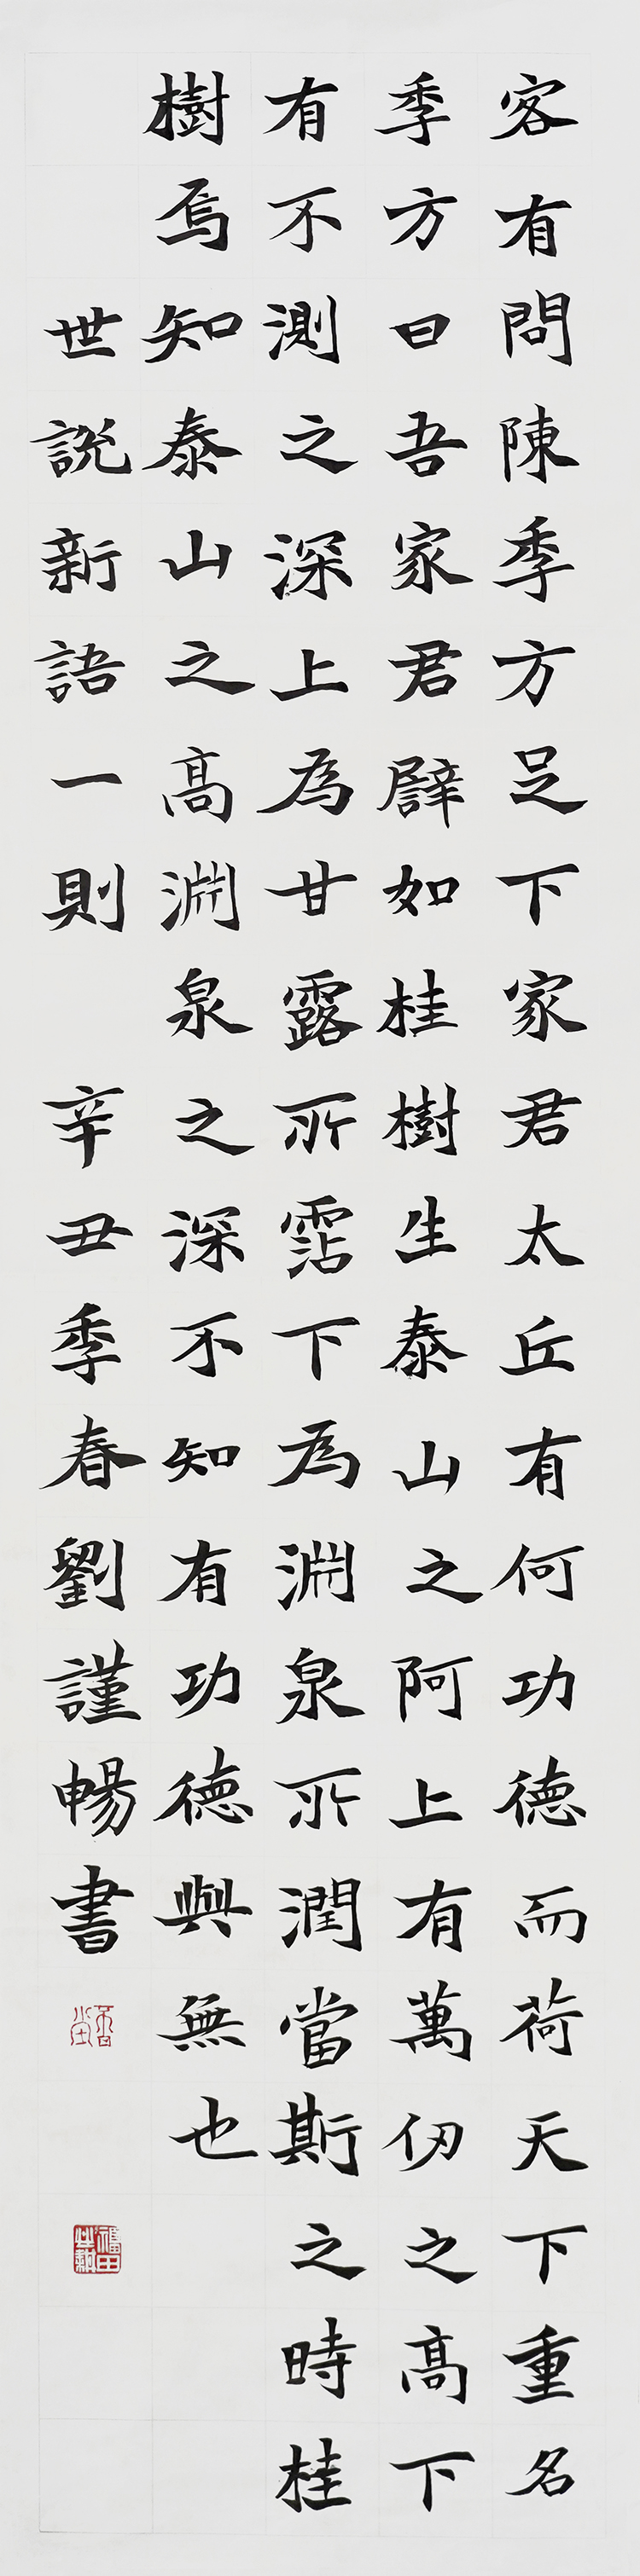 客有問陳季方足下家君太丘有何功德而荷天下重名
季方曰吾家君譬如桂樹生泰山之阿上有萬仞之高下
有不測之深上為甘露所霑下為淵泉所潤當斯之時桂
樹焉知泰山之高淵泉之深不知有功德與無也
世說新語一則 辛丑季春劉謹暢書